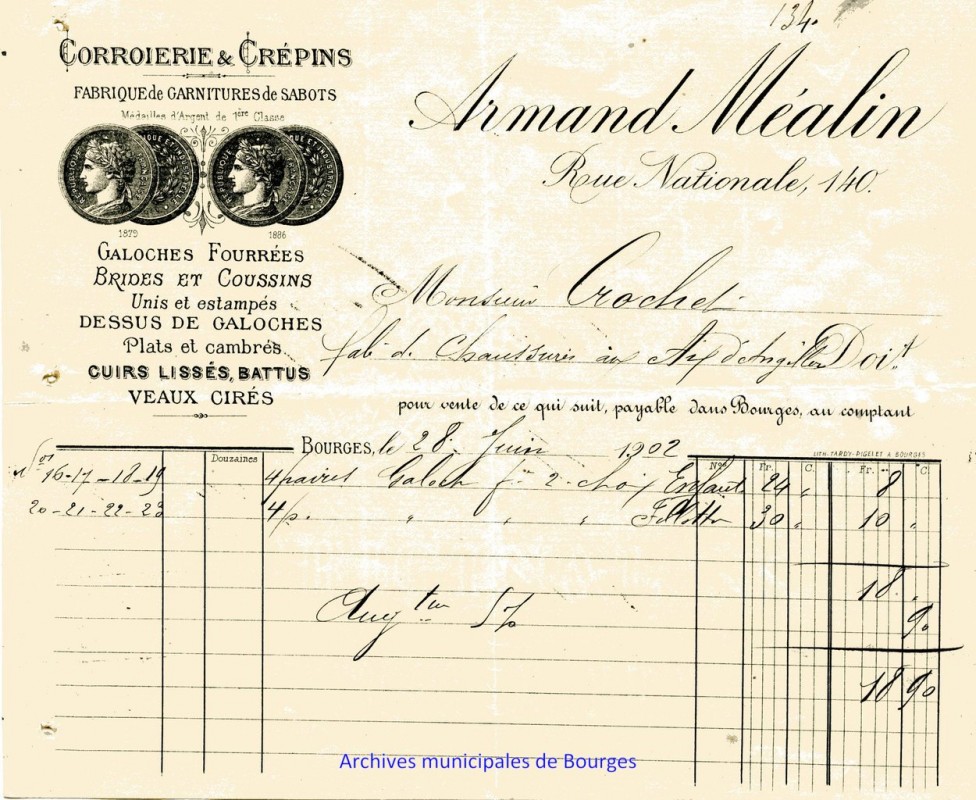 134.
CORROIERIE & CRÉPINS
FABRIQUE de GARNITURES de SABOTS
Médailles d'Argent de 1ère Classe
1879 1886
GALOCHES FOURRÉES
BRIDES ET COUSSINS
Unis et estampés
DESSUS DE GALOCHES
Plats et cambrés
CUIRS LISSÉS, BATTUS
VEAUX CIRÉS
Armand Méalin
Rue Nationale, 140.
Monsieur Crochet
fab. de Chaussures aux Aix d'Angillon Doit
pour vente de ce qui suit, payable dans Bourges, au comptant
BOURGES, le 28 Juin 1902
LITH. TARDY-PIGELET A BOURGES
Douzaines Nos Fr. C. Fr. C
16-17-18-19 4 paires Galoch fres 2e choix Enfant 24 " 8 "
20-21-22-23 4 p. " " " Fillette 30 " 10 "
18 "
Augtion 5% 90
18 90
Archives municipales de Bourges